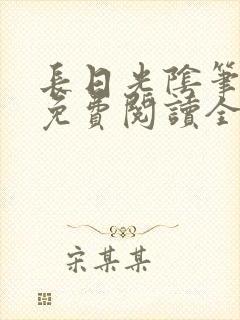 長日光陰筆
免費閱讀全
宋某某